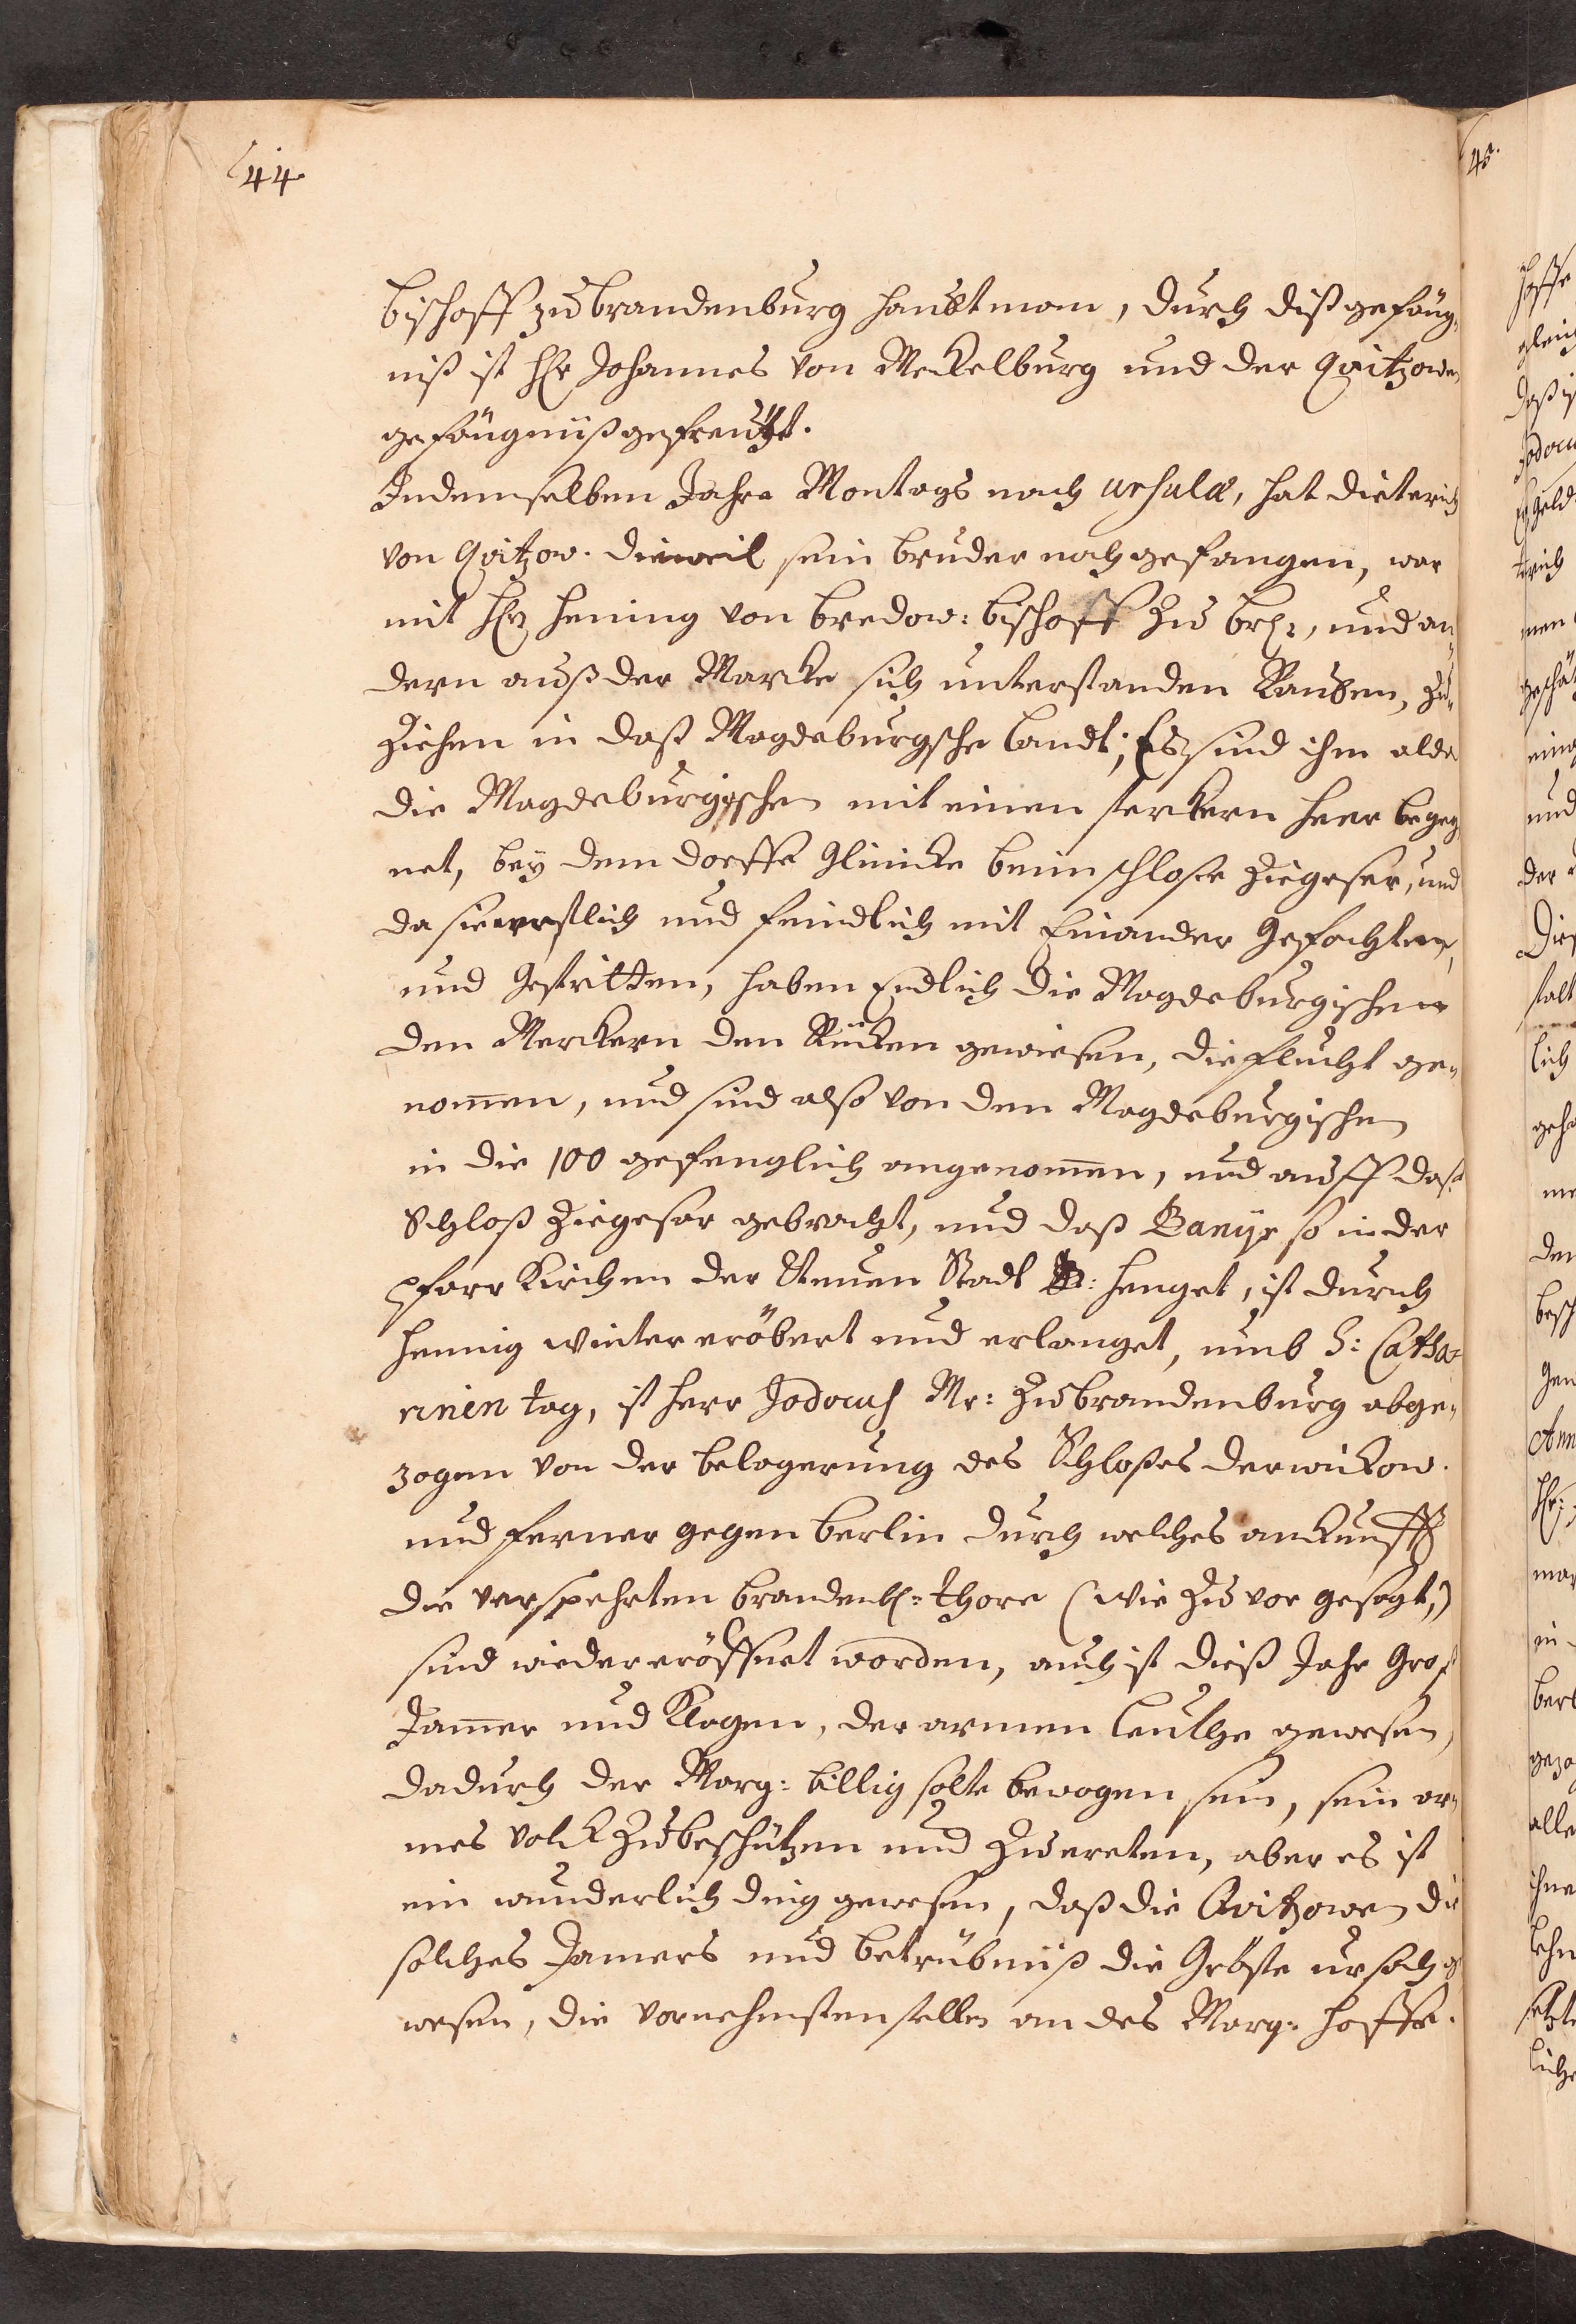 44.
bischoff zu brandenburg haubtman, durch diß gefäng,
niß ist H. Johannes von Meckelburg und der Qvitzowen
gefängniß gefreuhet.
In demselben Jahre Montags nach Ursulæ, hat dieterich
von Qvitzow. dieweil sein bruder noch gefangen, war
mit H. Hening von bredow: bischoff zu br:, und an„
dern auß der Marcke sich unterstanden Rauben, zu„
ziehen in daß Magdeburgsche landt; Es sind ihm alda
die Magdeburgischen mit einen sterckern Heer begeg,
net, bey dem dorffe Glinicke beim schlose Ziegeser, und
da sie ernstlich und feindlich mit Einander Gefochten,
und Gestritten, haben Endlich die Magdeburgischen
den Merckern den Rücken gewiesen, die flucht ge„
nommen, und sind also von den Magdeburgischen
in die 100 gefenglich angenommen, und auff daß
Schloß Ziegeser gebracht, und daß Banyr so in der
Pfarr Kirchen der Neuen Stadt B: henget, ist durch
Hennig Winter eröbert und erlanget, umb S: Catha=
rinen tag, ist Herr Jodocus Mr: zu brandenburg abge„
zogen von der belagerung des Schloßes derwickow.
und ferner gegen berlin durch welches anckunfft
die verspehrten brandenb:= thore (wie zu vor gesagt,)
sind wieder eröffnet worden, auch ist dieß Jahr Groß
Jammer und Klagen, der armen leuthe gewesen,
dadurch der Marg: billig solte bewogen sein, sein ar„
mes volck zu beschützen und zu ereten, aber es ist
ein wunderlich ding gewesen, daß die Qvitzowen die
solches Jamers und betrübniß die Gröste ursach ge
wesen, die vornehmsten stellen an des Marg: hoffe.